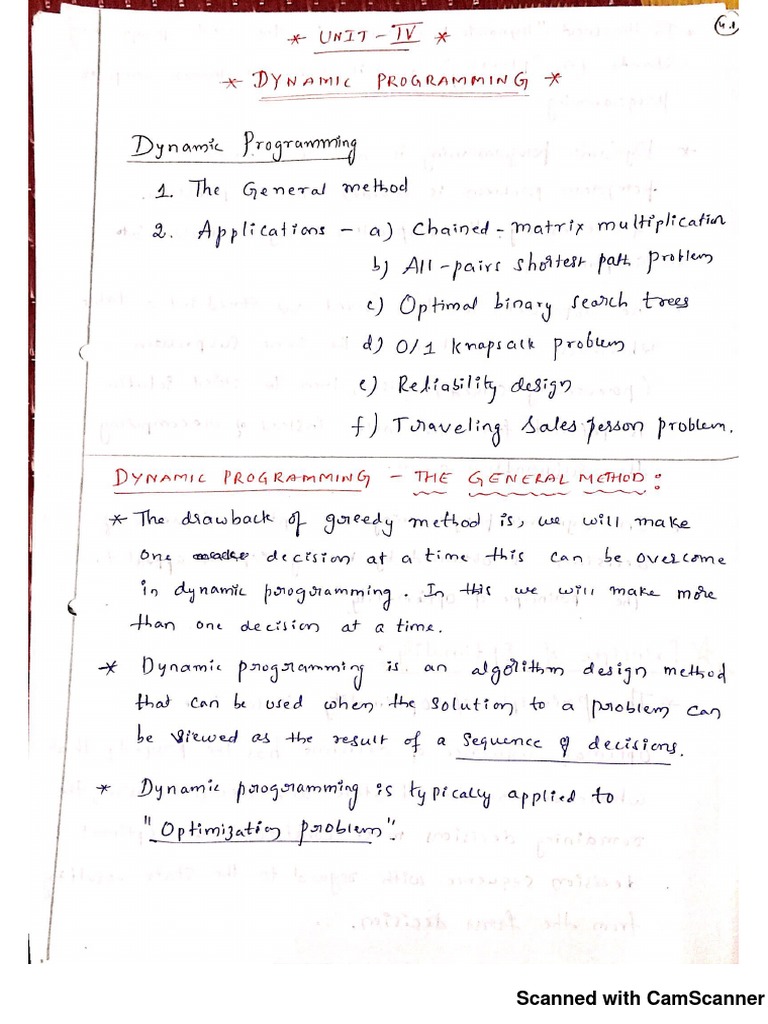 4.1
* UNIT - IV *
* DYNAMIC PROGRAMMING *
Dynamic Programming
1. The General method
2. Applications - a) Chained-matrix multiplication
b) All-pairs shortest path problem
c) Optimal binary search trees
d) 0/1 knapsack problem
e) Reliability design
f) Traveling Sales person problem.
DYNAMIC PROGRAMMING - THE GENERAL METHOD:
* The drawback of greedy method is, we will make
one decision at a time this can be overcome
in dynamic programming. In this we will make more
than one decision at a time.
* Dynamic programming is an algorithm design method
that can be used when the solution to a problem can
be viewed as the result of a sequence of decisions.
* Dynamic programming is typically applied to
"Optimization problem".
Scanned with CamScanner